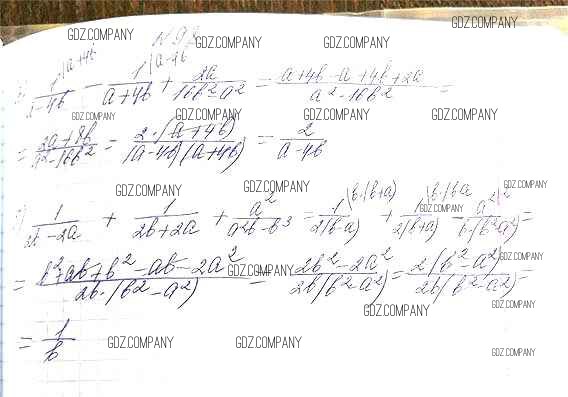 GDZ.COMPANY
N 98
GDZ.COMPANY GDZ.COMPANY GDZ.COMPANY
1/(a-4b) |(a+4b - 1/(a+4b) |(a-4b + 2a/(16b²-a²) = (a+4b-a+4b+2a)/(a²-16b²) =
GDZ.COMPANY GDZ.COMPANY GDZ.COMPANY
= (2a+8b)/(a²-16b²) = 2·(a+4b)/(a-4b)(a+4b) = 2/(a-4b)
GDZ.COMPANY GDZ.COMPANY GDZ.COMPANY
1/(2b-2a) + 1/(2b+2a) + a²/(a²b-b³) = 1/2(b-a) |b·(b+a) + 1/2(b+a) |b·(b-a - a²/b·(b²-a²) |2 =
= (b²+ab+b²-ab-2a²)/2b·(b²-a²) = (2b²-2a²)/2b(b²-a²) = 2(b²-a²)/2b(b²-a²) =
GDZ.COMPANY GDZ.COMPANY
GDZ.COMPANY
= 1/b
GDZ.COMPANY GDZ.COMPANY GDZ.COMPANY